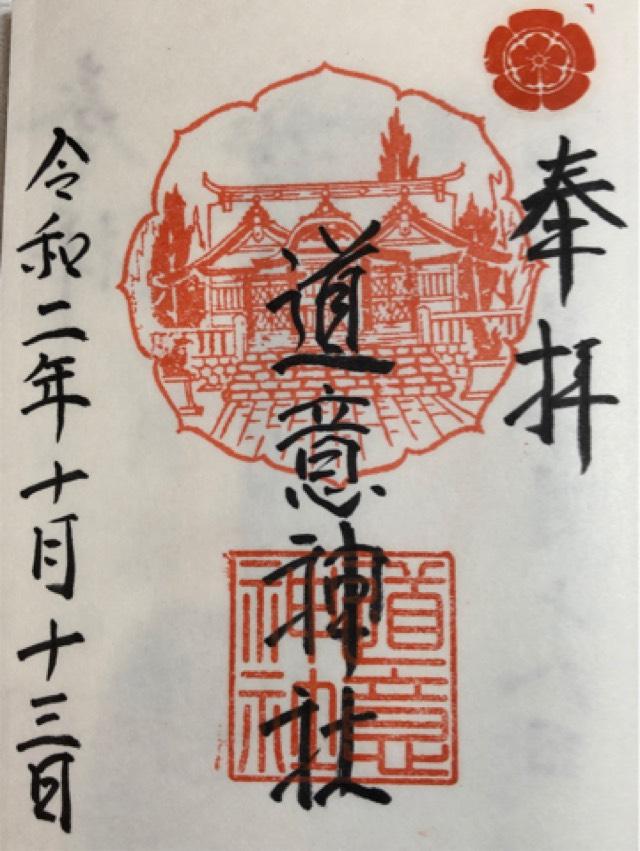 奉拝
道意神社
道意神社
令和二年十月十三日